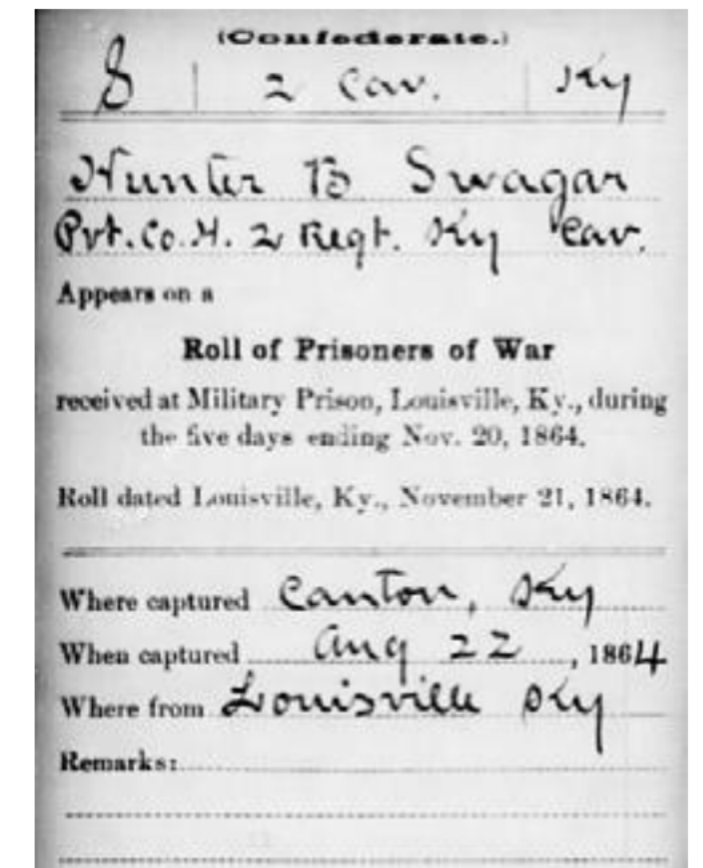 (Confederate.)
S | 2 Cav. | Ky
Hunter B Swagar
Pvt. Co. H. 2 Regt. Ky Cav.
Appears on a
Roll of Prisoners of War
received at Military Prison, Louisville, Ky., during
the five days ending Nov. 20, 1864.
Roll dated Louisville, Ky., November 21, 1864.
Where captured Canton, Ky
When captured Aug 22, 1864
Where from Louisville Ky
Remarks: